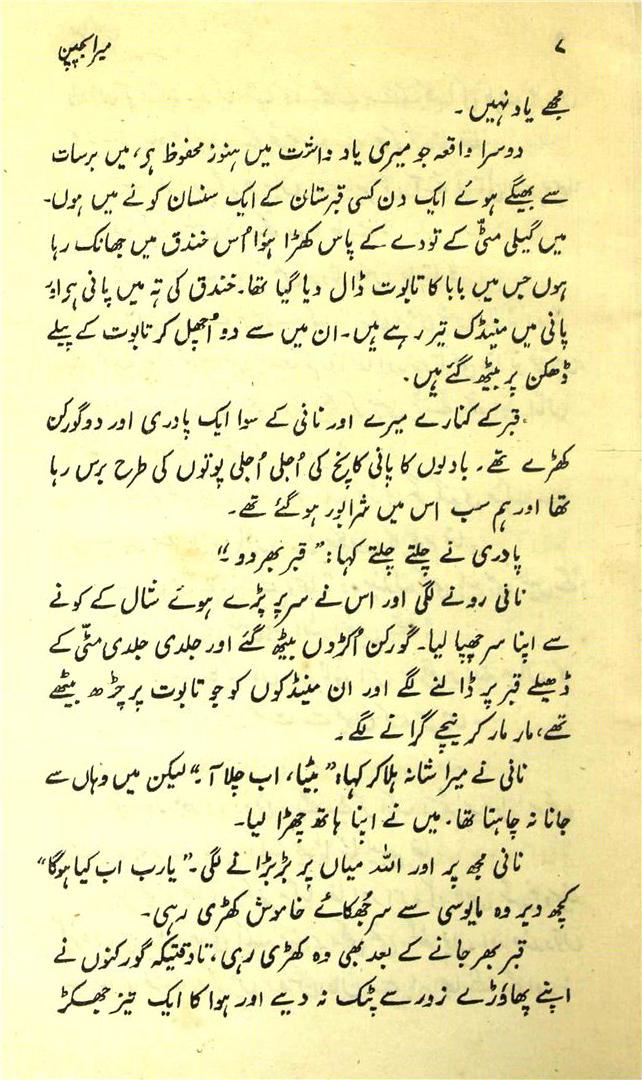 ۷ میرا بچپن
مجھے یاد نہیں ۔
دوسرا واقعہ جو میری یاد داشت میں ہنوز محفوظ ہے، میں برسات
سے بھیگے ہوئے ایک دن کسی قبرستان کے ایک سنسان کونے میں ہوں۔
میں گیلی مٹّی کے تودے کے پاس کھڑا ہؤا اُس خندق میں جھانک رہا
ہوں جس میں بابا کا تابوت ڈال دیا گیا تھا۔ خندق کی تہ میں پانی ہے اور
پانی میں مینڈک تیر رہے ہیں۔ ان میں سے دو اُچھل کر تابوت کے پیلے
ڈھکن پر بیٹھ گئے ہیں۔
قبر کے کنارے میرے اور نانی کے سوا ایک پادری اور دو گورکن
کھڑے تھے۔ بادلوں کا پانی کانچ کی اُجلی اُجلی پوتوں کی طرح برس رہا
تھا اور ہم سب اس میں شرابور ہو گئے تھے۔
پادری نے چلتے چلتے کہا: "قبر بھر دو ۔"
نانی رونے لگی اور اس نے سر پر پڑے ہوئے شال کے کونے
سے اپنا سر چھپا لیا۔ گورکن اُکڑوں بیٹھ گئے اور جلدی جلدی مٹّی کے
ڈھیلے قبر پر ڈالنے لگے اور ان مینڈکوں کو جو تابوت پر چڑھ بیٹھے
تھے، مار مار کر نیچے گرانے لگے۔
نانی نے میرا شانہ ہلا کر کہا: "بیٹا، اب چلا آ۔" لیکن میں وہاں سے
جانا نہ چاہتا تھا۔ میں نے اپنا ہاتھ چھڑا لیا۔
نانی مجھ پر اور اللہ میاں پر بڑبڑانے لگی۔ "یارب اب کیا ہوگا"
کچھ دیر وہ مایوسی سے سر جُھکائے خاموش کھڑی رہی۔
قبر بھر جانے کے بعد بھی وہ کھڑی رہی، تاوقتیکہ گورکنوں نے
اپنے پھاؤڑے زور سے پٹک نہ دیے اور ہوا کا ایک تیز جھکڑ